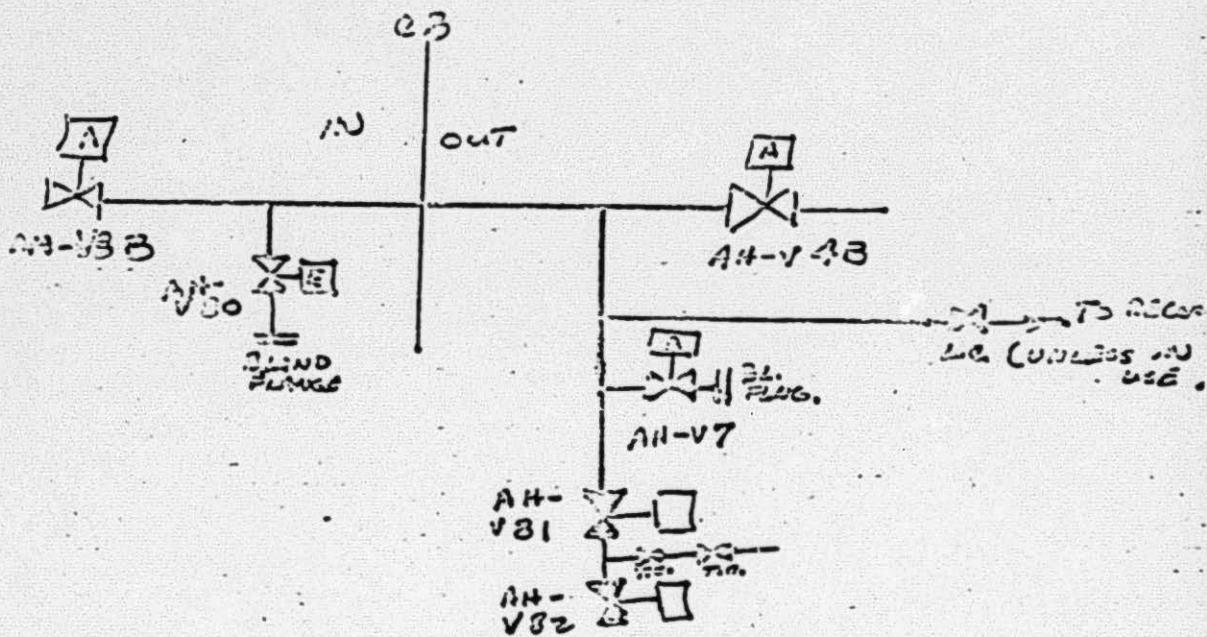 CB
IN
OUT
A
A
AH-V3B
AH-V4B
AH-
V80
E
BLIND
FLANGE
TO RECOM
L.C. (UNLESS IN
USE.
A
BL.
FLNG.
AH-V7
AH-
V81
T.C.
AH-
V82